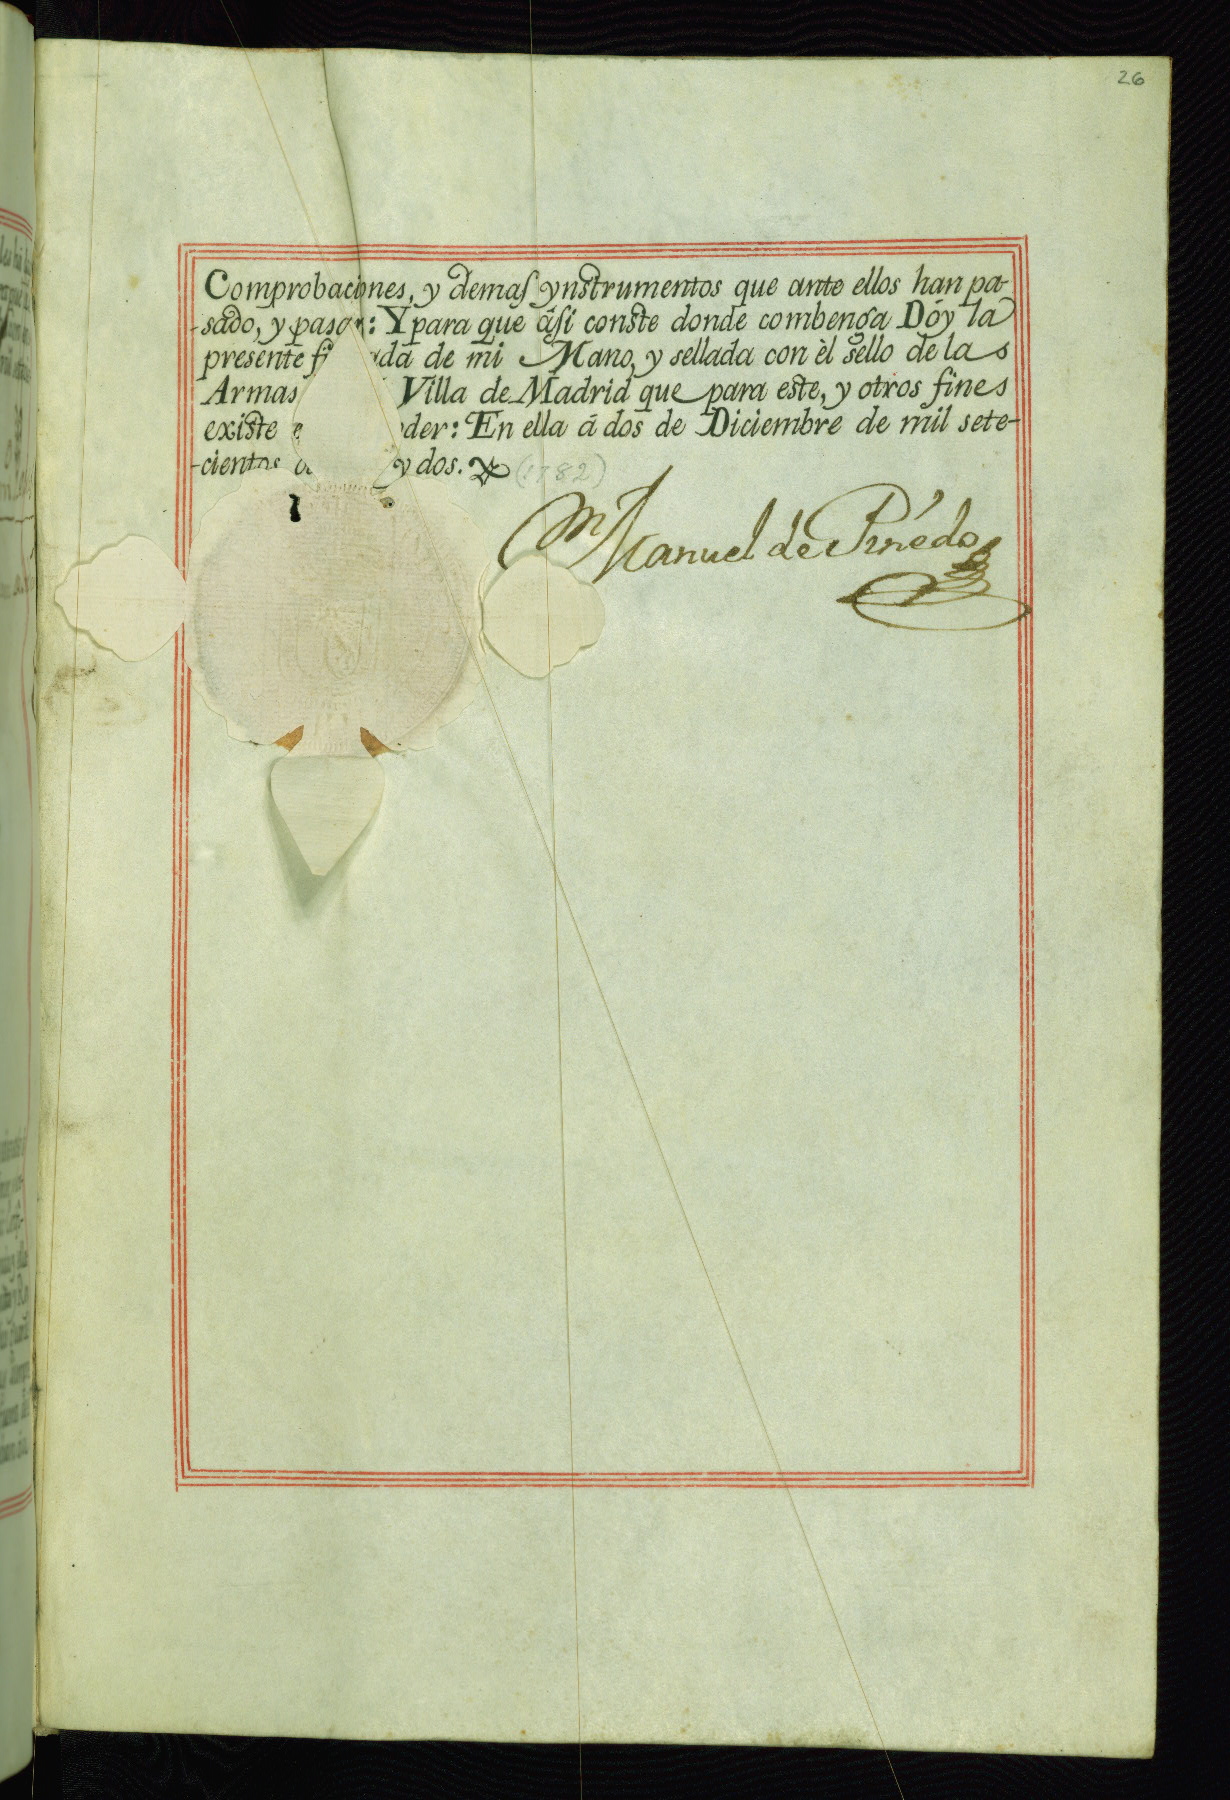 26
Comprobaciones, y demas ynstrumentos que ante ellos han pa-
-sado, y pasan: Y para que ási conste donde combenga Dóy la
presente fi ada de mi Mano, y sellada con èl sello de las
Armas Villa de Madrid que para este, y otros fines
existe e der: En ella á dos de Diciembre de mil sete-
-cientos y dos. (1782)
Manuel de Pinédo